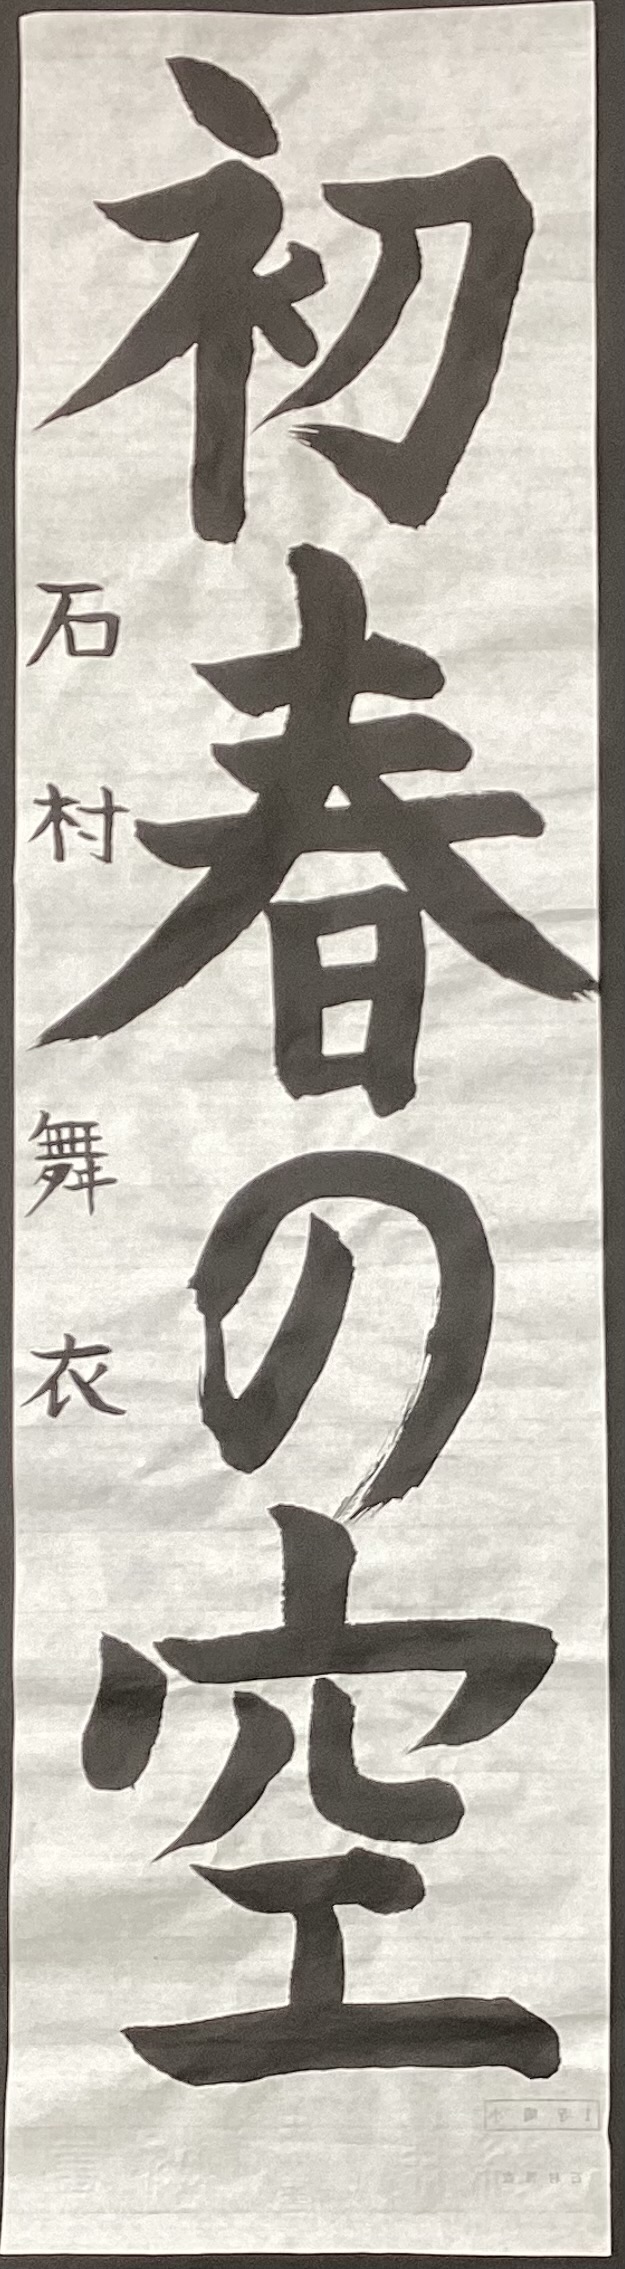 初春の空
石村舞衣